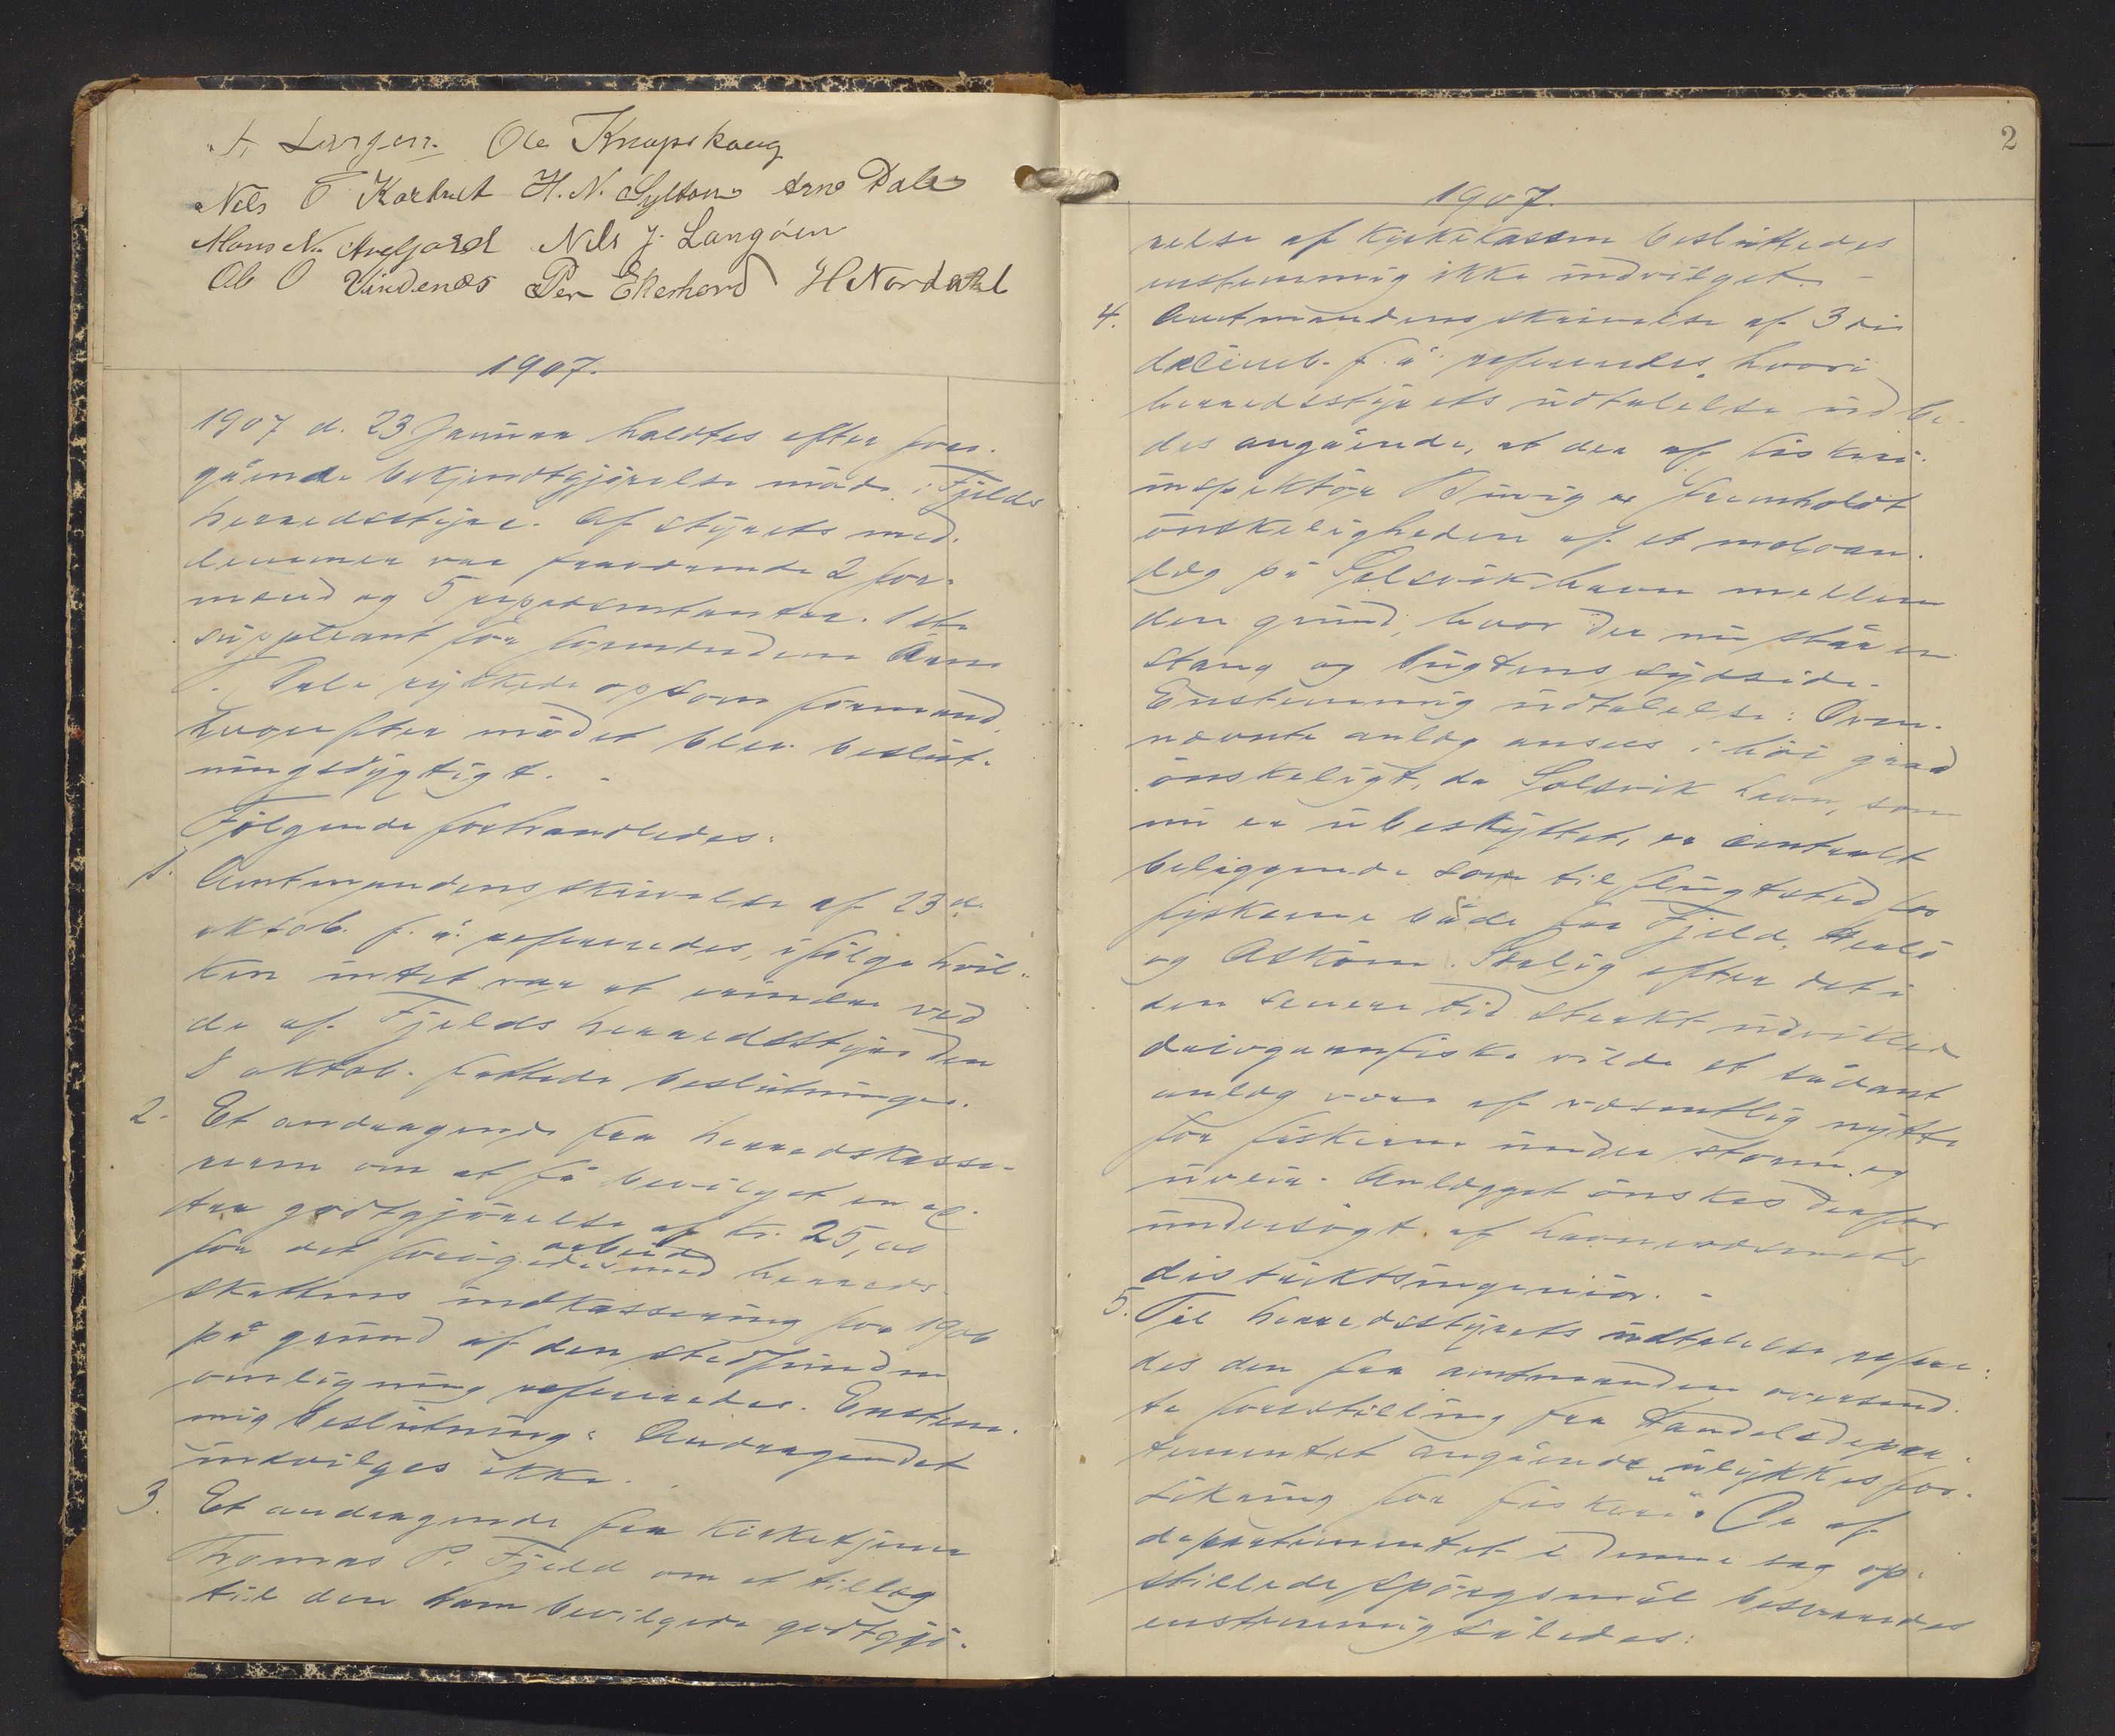 Ole Knapskoug
Nils O Kortvet H. N. Sylta Arne Dale
Mons N. Nils J. Langöen
Ole O Vindenæs Per Ekerhovd H Nordahl
1907.
1907 d. 23 januar holdtes efter fore-
gående bekjendtgjörelse möde i Fjelds
herredsstyre. Af styrets med-
lemmer var fraværende 2 for-
mænd og 5 repræsentanter. 1ste
suppleant for formændene Arne
T. Dale rykkede op som formand,
hvorefter mödet blev beslut-
ningsdygtigt. -
Fölgende forhandledes:
1. Amtmandens skrivelse af 23de
oktob. f. å. refereredes, ifölge hvil-
ken intet var at erindre ved
de af Fjelds herredsstyre den
8 oktob. fattede beslutninger.
2. Et andragende fra herredskasse-
reren om at få bevilget en ex-
tra godtgjörelse af kr. 25,00
for det forögede arbeid med herreds-
skattens indkassering for 1906
på grund af den stedfundne
omligning refereredes. Enstem-
mig beslutning: Andragendet
indvilges ikke.
3. Et andragende fra kirketjener
Thomas P. Fjeld om et tillæg
til den ham bevilgede godtgjö-
2
1907.
relse af kirkekassen besluttedes
enstemmig ikke indvilget. -
4. Amtmandens skrivelse af 3die
decemb. f. å. refereredes, hvori
herredsstyrets udtalelse udbe-
des angående, at der af fiskeri-
inspektör er fremholdt
önskeligheden af et moloan-
læg på Solsvik havn mellem
den grund, hvor der nu står en
stang og bugtens sydside.
Enstemmig udtalelse: Oven-
nævnte anlæg ansees i höi grad
önskeligt, da Solsvik havn, som
nu er ubeskyttet, er centralt
beliggende som tilflugtsted for
fiskerne både fra Fjeld, Herlö
og Asköen. Særlig efter det i
den senere tid sterkt udviklede
drivgarnfiske vilde et sådant
anlæg være af væsentlig nytte
for fiskerne under storm og
uveir. Anlægget önskes derfor
undersögt af havnevæsenets
distriktsingeniör. -
5. Til herredsstyrets udtalelse refere-
des den fra amtmanden oversend-
te forestilling fra Handelsdepar-
tementet angående "ulykkesfor-
sikring for fiskere". De af
departementet i denne sag op-
stillede spörgsmål besvaredes
enstemmig således: